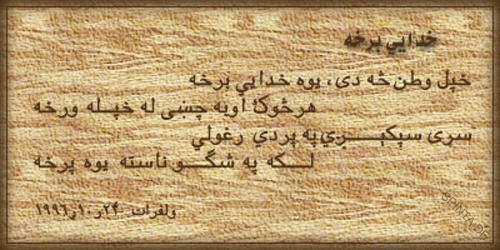 خدايي برخه
خپل وطن څه دی، يوه خدايي برخه
هرڅوک اوبه چښي له خپله ورخه
سړی سپکېـــږي په پردي رغولي
لــکه په شګـو ناسته يوه پرخه
ولفرات ۲۴ر۱۰ر۱۹۹٦